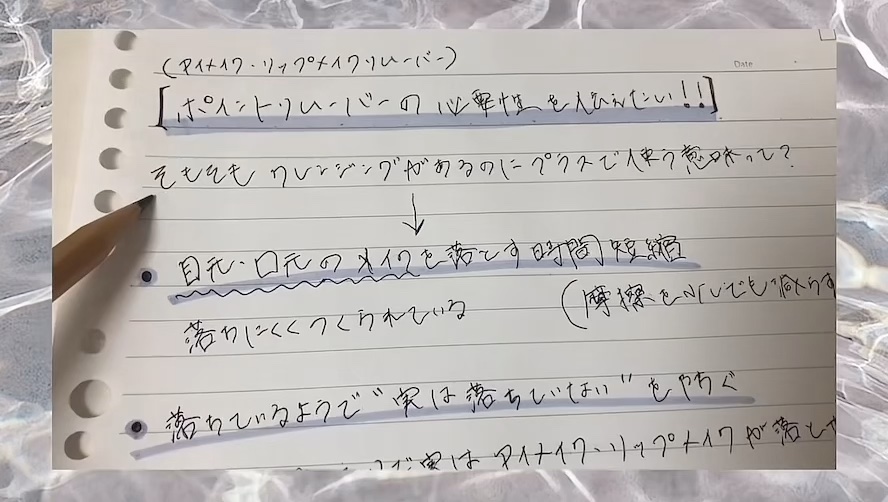 Date
(アイメイク・リップメイクリムーバー)
[ポイントリムーバーの必要性を伝えたい!!]
そもそも クレンジングがあるのに プラスで使う意味って?
↓
● 目元・口元のメイクを落とす時間短縮
落ちにくくつくられている (摩擦を少しでも減らす
● 落ちているようで"実は落ちていない"をやちぐ
実は アイメイク・リップメイクが落と